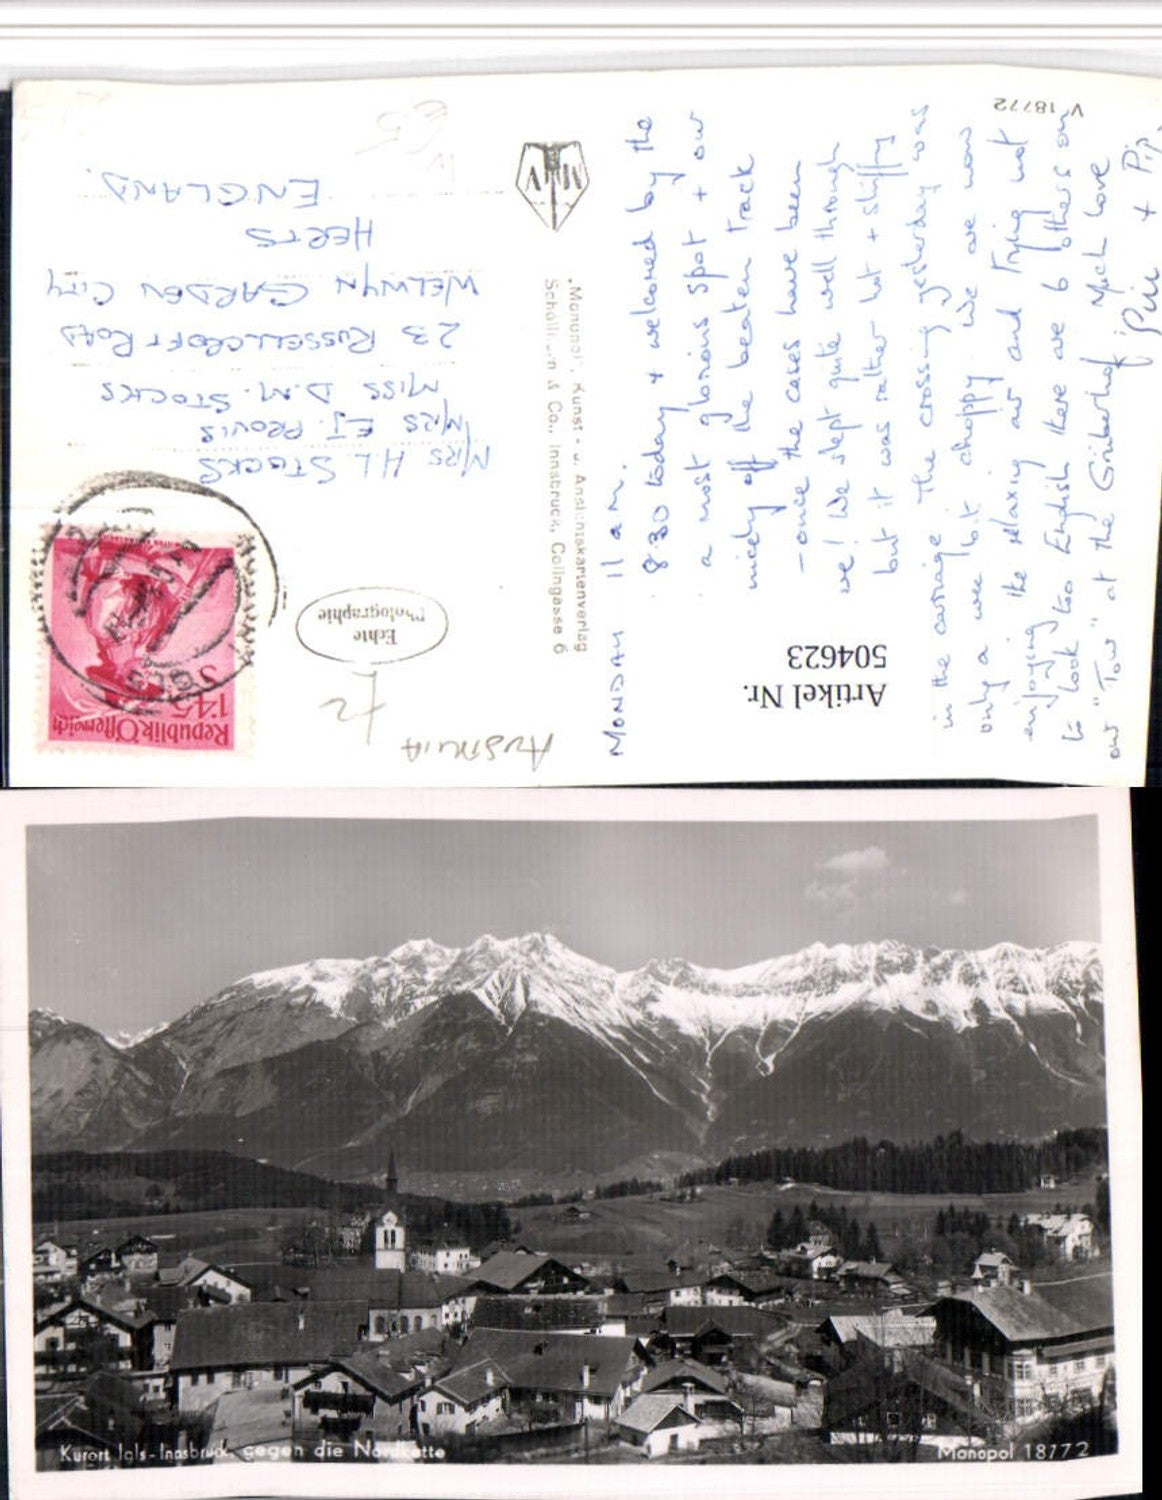 V 18772
MONDAY 11 am.
8.30 today + welcomed by the
a most glorious spot + our
nicely off the beaten track
- once the cases have been
we! We slept quite well through
but it was rather hot + stuffy
in the carriage The crossing yesterday was
only a wee bit choppy. We are now
enjoying the relaxing air and trying not
to look too English there are 6 others on
our "Tour" at the Grünerhof Much love
+ Pip.
MRS H L STOCKS
MRS E.J. PROVIS
MISS D.M. STOCKS
23 RUSSELLCROFT ROAD
WELWYN GARDEN CITY
HERTS
ENGLAND.
"Monopol", Kunst- u. Ansichtskartenverlag
& Co., Innsbruck, Colingasse 6
Echte
Photographie
Republik Österreich
1'45
S
IGLS
Artikel Nr.
504623
£2
AUSTRIA
Kurort Igls-Innsbruck, gegen die Nordkette
Monopol 18772